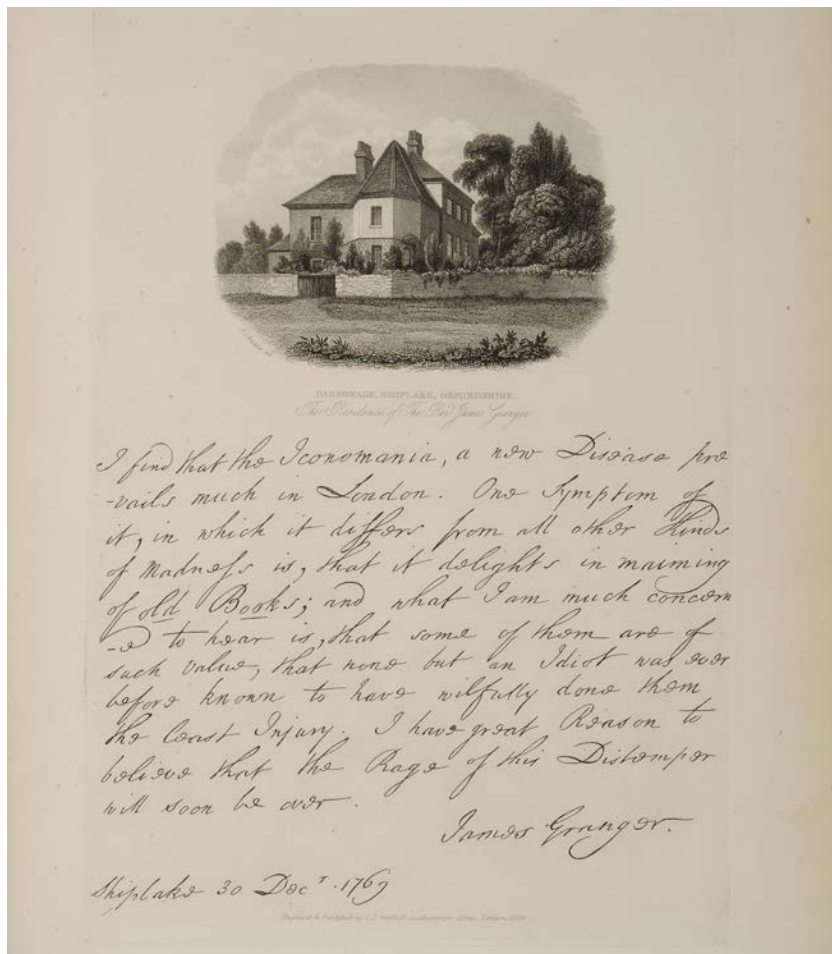 PARSONAGE, SHIPLAKE, OXFORDSHIRE.
The Residence of The Revd. James Granger
I find that the Iconomania, a new Disease pre
-vails much in London. One Symptom of
it, in which it differs from all other Kinds
of Madness is, that it delights in maiming
of old Books; and what I am much concern
-ed to hear is, that some of them are of
such value, that none but an Idiot was ever
before known to have wilfully done them
the least Injury. I have great Reason to
believe that the Rage of this Distemper
will soon be over.
James Granger.
Shiplake 30 Decr. 1769
Engraved & Published by C. J. Smith, Southampton Street, London